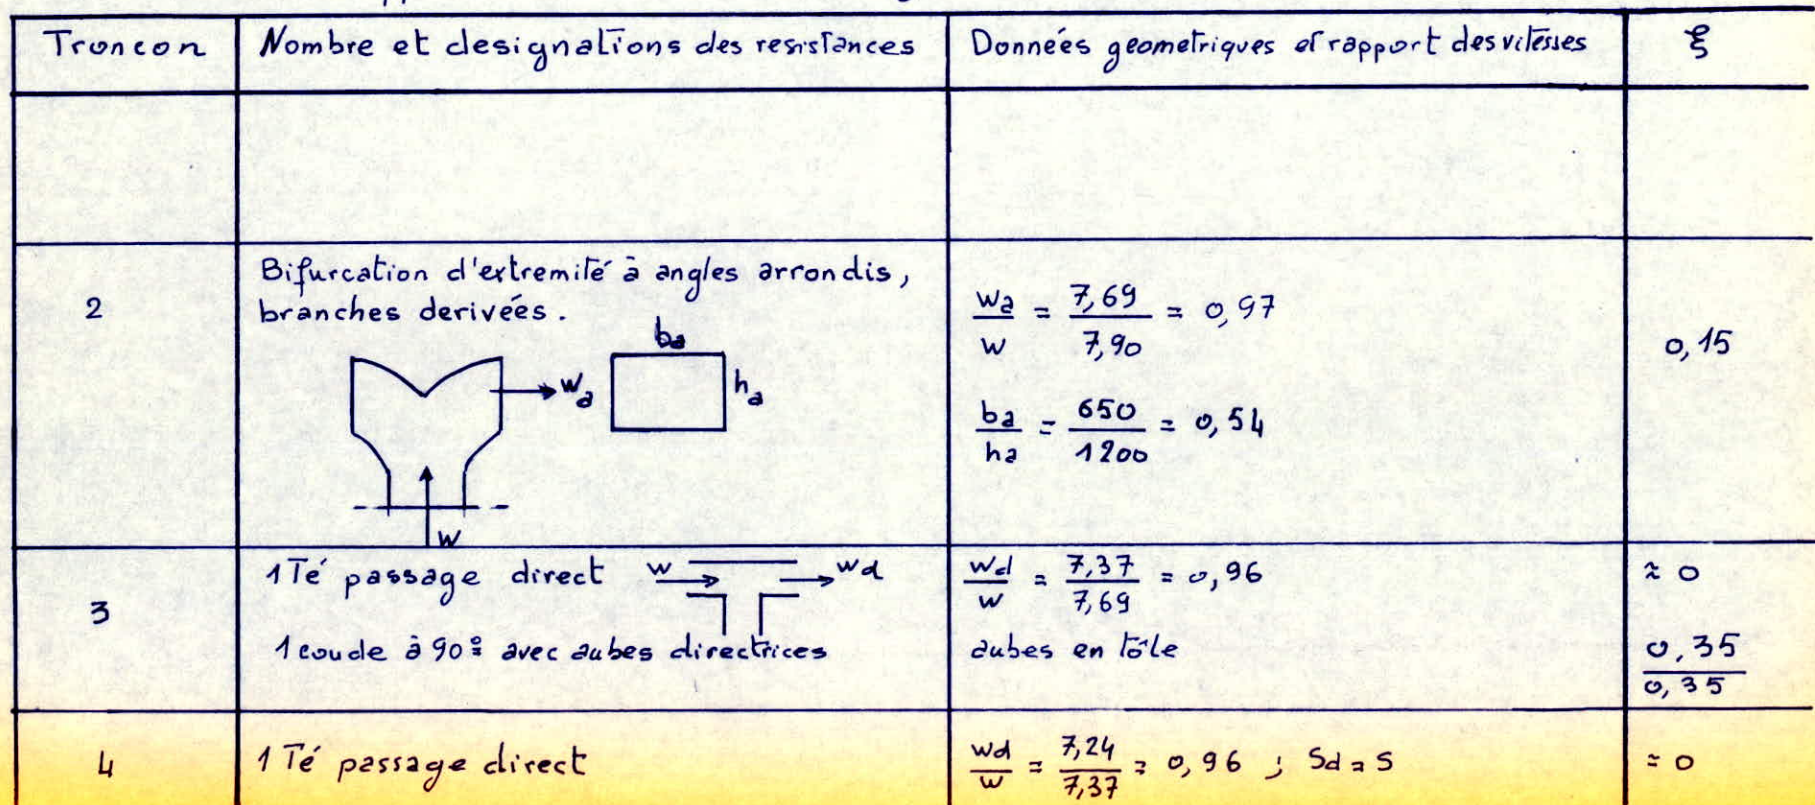 Troncon Nombre et designations des resistances Données geometriques et rapport des vitesses ξ
2 Bifurcation d'extremité à angles arrondis,
branches derivées.
ba
ha
wa
w
wa/w = 7,69/7,90 = 0,97
ba/ha = 650/1200 = 0,54
0,15
3 1 Té passage direct w wd wd/w = 7,37/7,69 = 0,96 ≈ 0
1 coude à 90° avec aubes directrices aubes en tôle 0,35
0,35
4 1 Té passage direct wd/w = 7,24/7,37 = 0,96 ; Sd = S ≈ 0